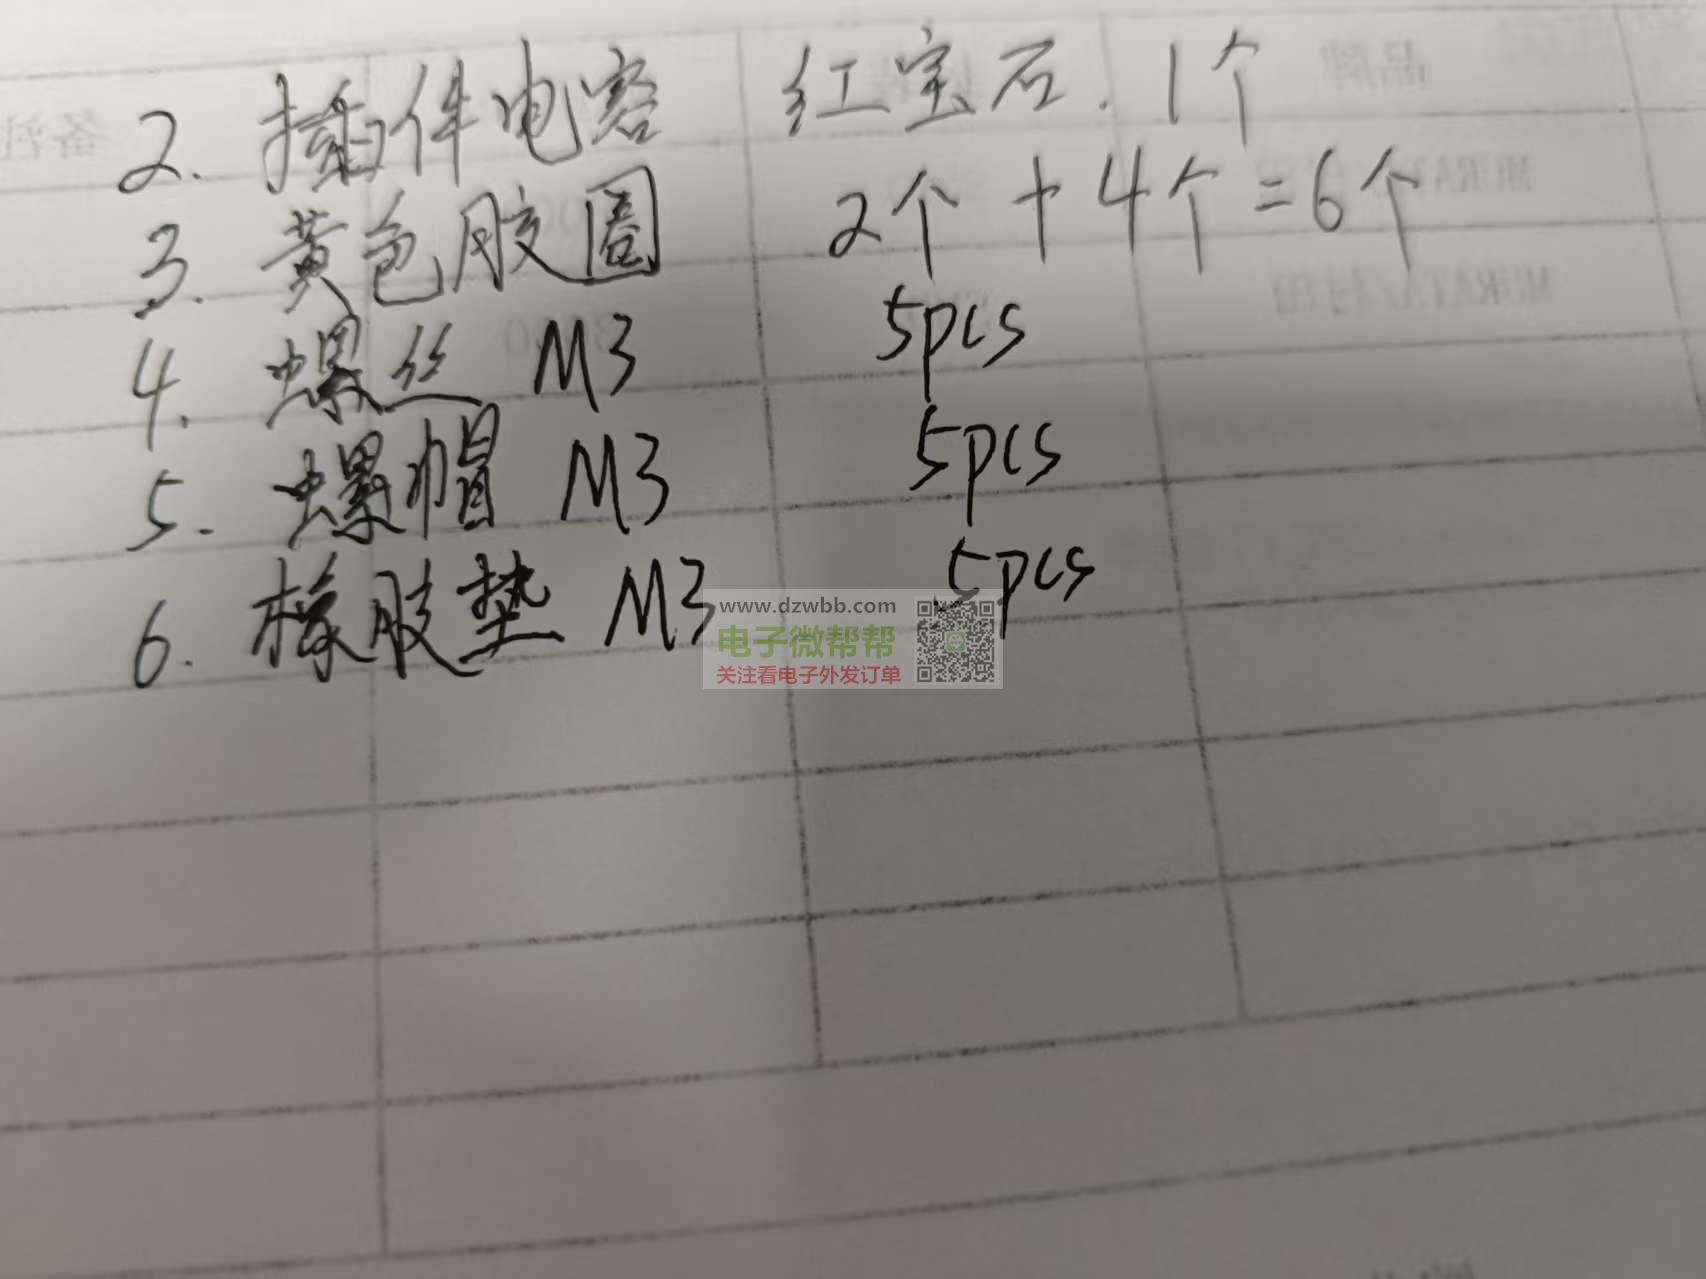 2. 插件电容 红宝石. 1个
3. 黄色胶圈 2个 + 4个 = 6个
4. 螺丝 M3 5pcs
5. 螺帽 M3 5pcs
6. 橡胶垫 M3 5pcs
www.dzwbb.com
电子微帮帮
关注看电子外发订单